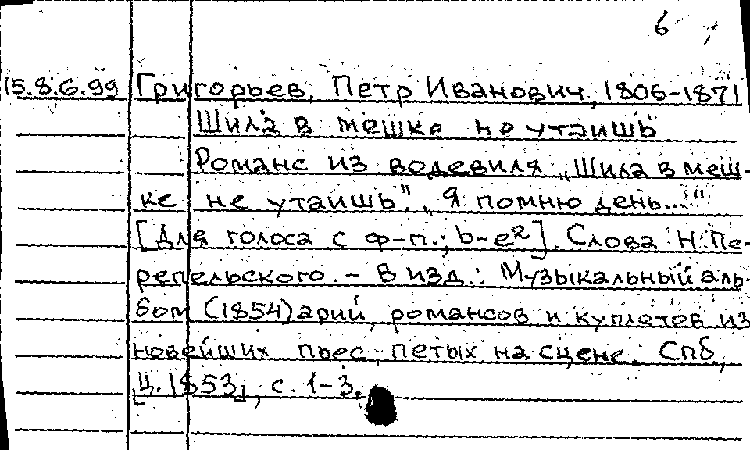 6
15.8.6.99 Григорьев, Петр Иванович, 1806-1871
Шила в мешке не утаишь
Романс из водевиля „Шила в меш-
ке не утаишь". „Я помню день..."
[Для голоса с ф-п.; b-e²]. Слова Н. Пе-
репельского. - В изд.: Музыкальный аль-
бом (1854) арий, романсов и куплетов из
новейших пьес, петых на сцене. Спб,
ц. 1853, с. 1-3.